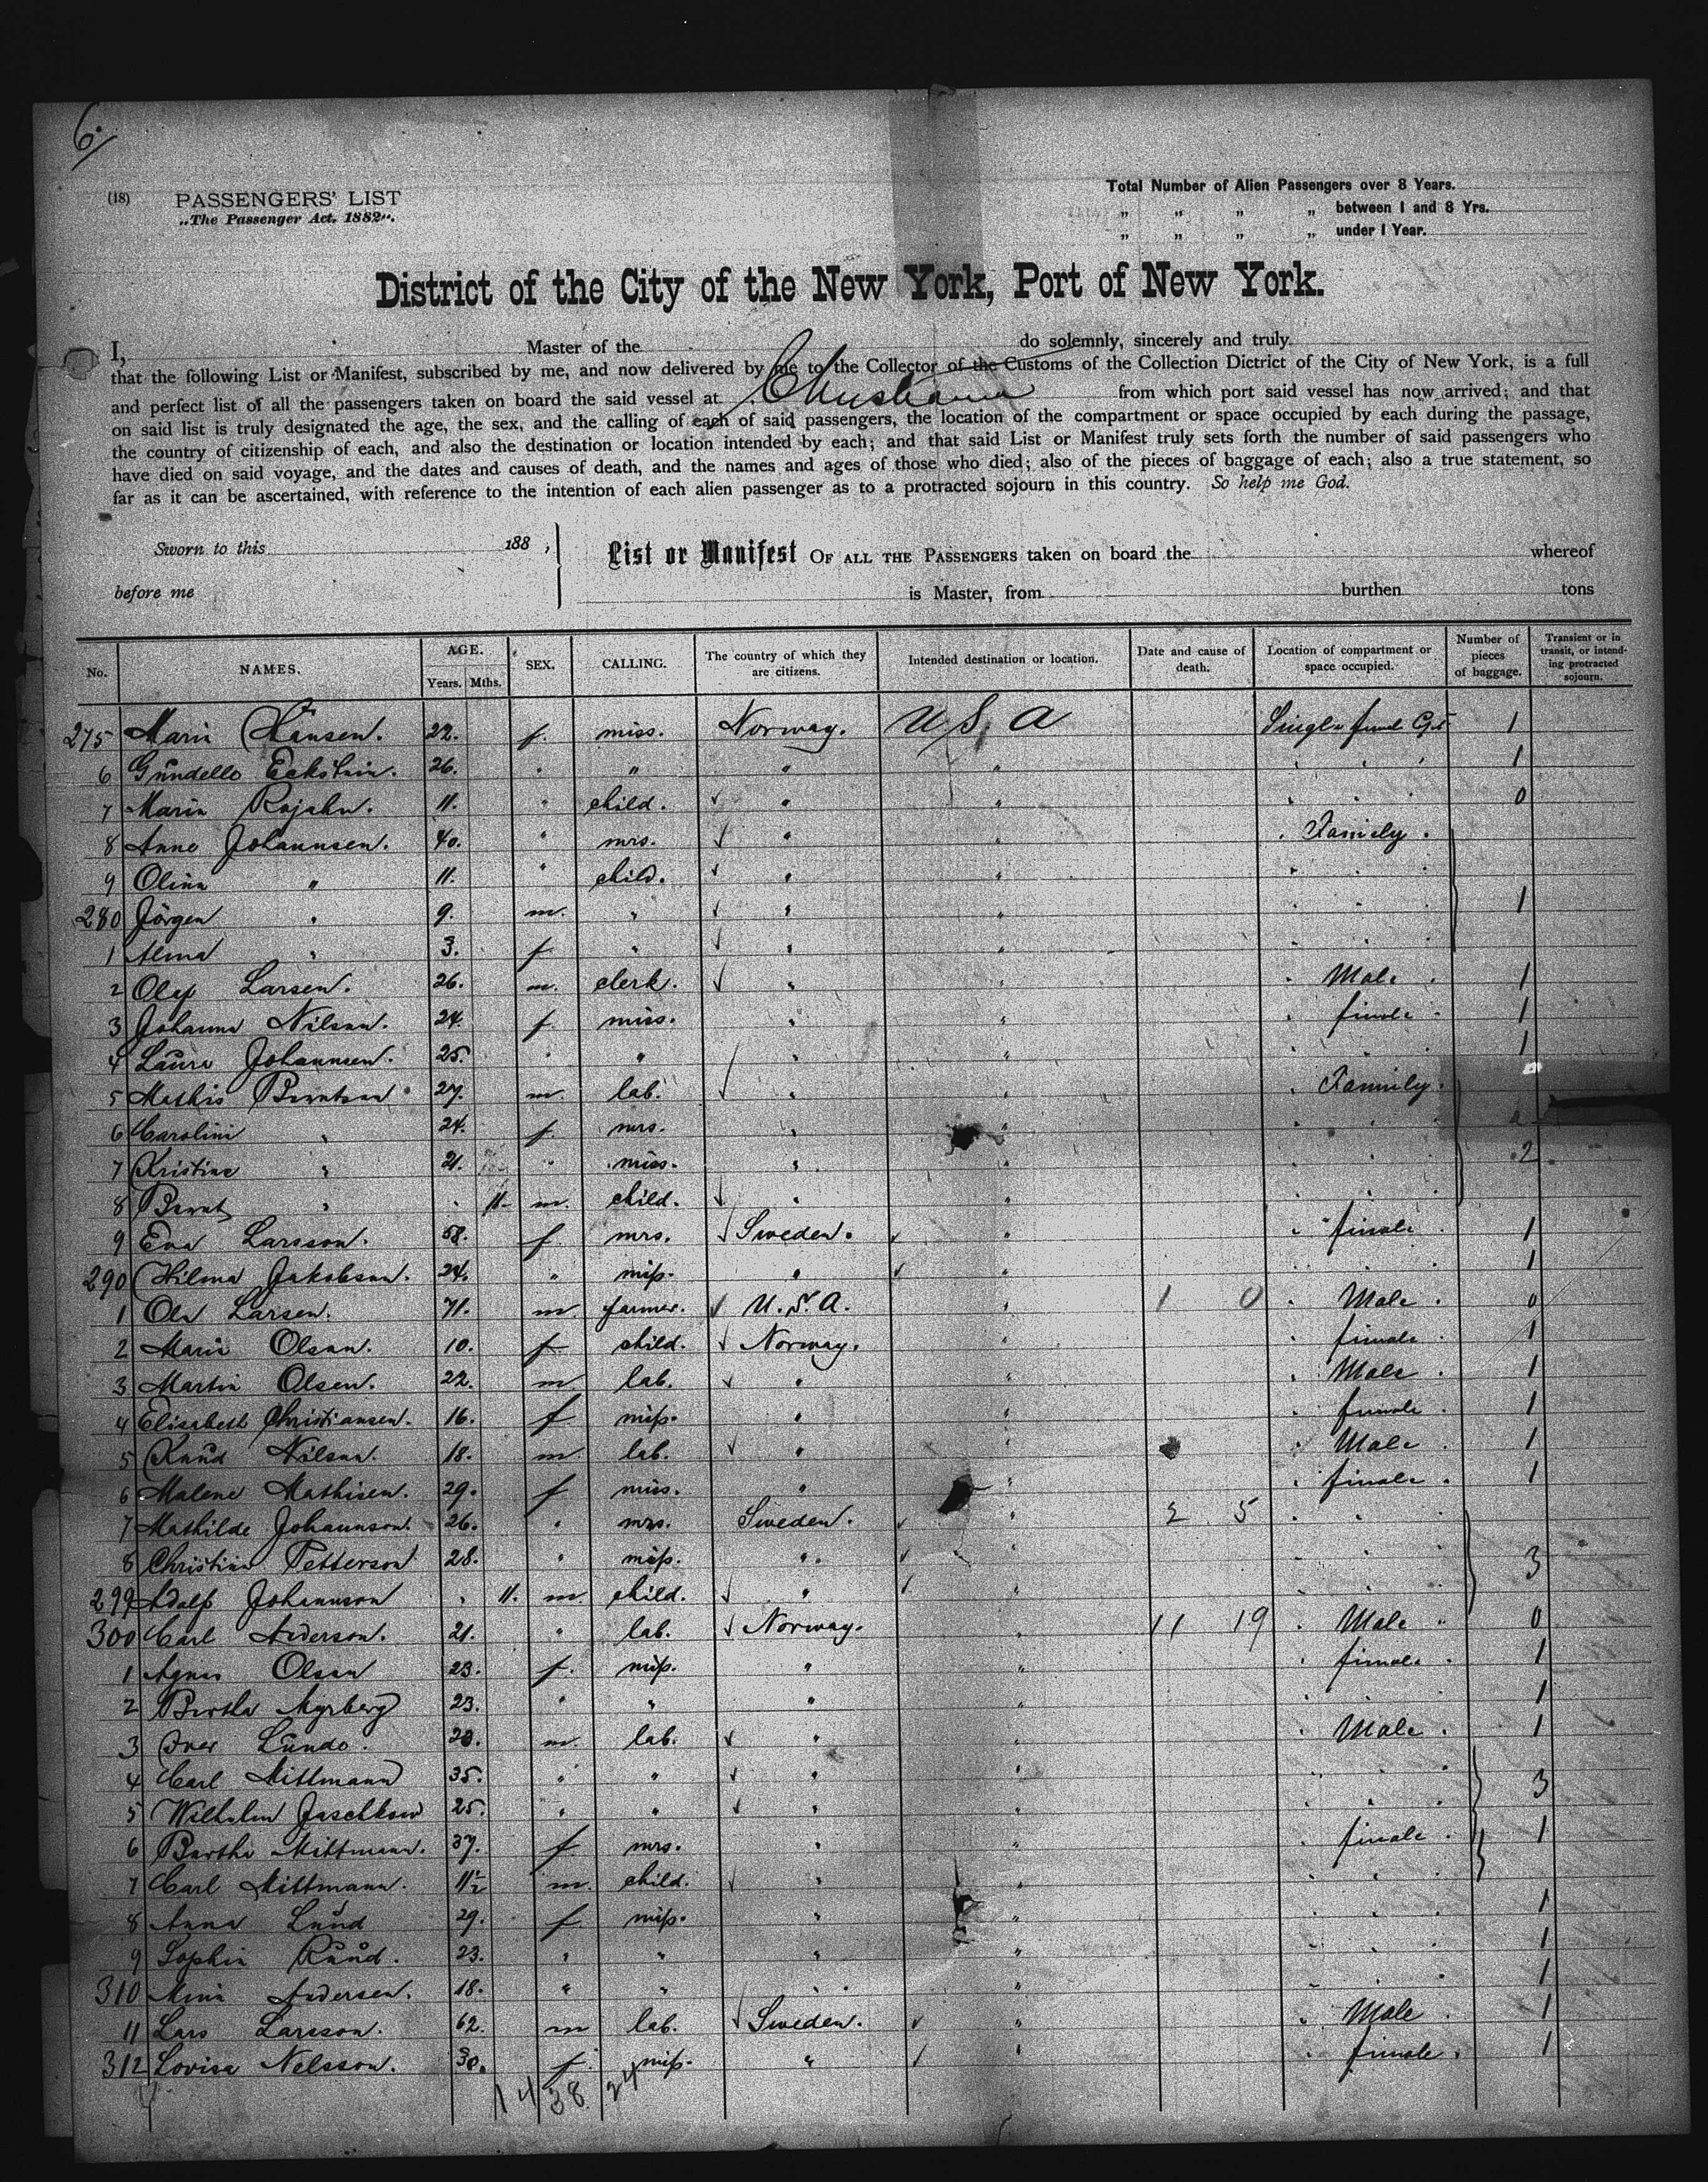 6.
(18) PASSENGERS' LIST
„The Passenger Act, 1882".
Total Number of Alien Passengers over 8 Years.
„ „ „ „ between 1 and 8 Yrs.
„ „ „ „ under 1 Year.
District of the City of the New York, Port of New York.
I, Master of the do solemnly, sincerely and truly
that the following List or Manifest, subscribed by me, and now delivered by me to the Collector of the Customs of the Collection District of the City of New York, is a full
and perfect list of all the passengers taken on board the said vessel at Christiania from which port said vessel has now arrived; and that
on said list is truly designated the age, the sex, and the calling of each of said passengers, the location of the compartment or space occupied by each during the passage,
the country of citizenship of each, and also the destination or location intended by each; and that said List or Manifest truly sets forth the number of said passengers who
have died on said voyage, and the dates and causes of death, and the names and ages of those who died; also of the pieces of baggage of each; also a true statement, so
far as it can be ascertained, with reference to the intention of each alien passenger as to a protracted sojourn in this country. So help me God.
Sworn to this 188 ,
List or Manifest OF ALL THE PASSENGERS taken on board the whereof
before me
is Master, from burthen tons
No. NAMES. AGE. Years. Mths. SEX. CALLING. The country of which they are citizens. Intended destination or location. Date and cause of death. Location of compartment or space occupied. Number of pieces of baggage. Transient or in transit, or intending protracted sojourn.
275 Marie Hansen. 22. f. miss. Norway. U S A Single 1
6 Eckstein. 26. " " " " 1
7 Marie Rojahn. 11. " child. " " 0
8 Anne Johannsen. 40. " mrs. " " Family.
9 Olina " 11. " child. " "
280 Jörgen " 9. m. " " " 1
1 Alma " 3. f " " "
2 Olaf Larsen. 26. m. clerk. " " Male 1
3 Johanna Nilsen. 24. f miss. " " female 1
4 Laura Johannsen. 25. " " " " 1
5 Mathis Berntsen 27. m. lab. " " Family.
6 Caroline " 24. f. mrs. " "
7 Kristine " 21. " miss. " " 2
8 Bernt " 11. m. child. " "
9 Eva Larsson. 58. f mrs. Sweden. " female 1
290 Hilma Jakobson. 24. " miss. " " 1
1 Ole Larsen. 71. m farmer. U.S.A. " 1 0 Male 0
2 Marie Olsen. 10. f child. Norway. " female 1
3 Martin Olsen. 22. m lab. " " Male 1
4 Elisabeth Christiansen. 16. f miss. " " female 1
5 Knud Nilsen. 18. m. lab. " " Male 1
6 Malene Mathisen. 29. f miss. " " female 1
7 Mathilde Johannson. 26. " mrs. Sweden. " 2 5
8 Christine Petterson 28. " miss. " " 3
299 Adolf Johannson 11. m child. " "
300 Carl Anderson. 21. " lab. Norway. " 11 19 Male 0
1 Agnes Olsen 23. f. miss. " " female 1
2 Bertha Myrberg 23. " " " " 1
3 Iver Lunde. 20. m. lab. " " Male 1
4 Carl Mittmann 35. " " " " 3
5 Wilhelm Jaschkow 25. " " " "
6 Bertha Mittmann. 37. f mrs. " " female 1
7 Carl Mittmann. 11½ m. child. " "
8 Anna Lund 29. f miss. " " 1
9 Sophie Ruud. 23. " " " " 1
310 Mina Andersen. 18. " " " " 1
11 Lars Larsson. 62. m lab. Sweden. " Male 1
312 Lovisa Nelsson. 30. f. miss. " " female 1
14 38 24